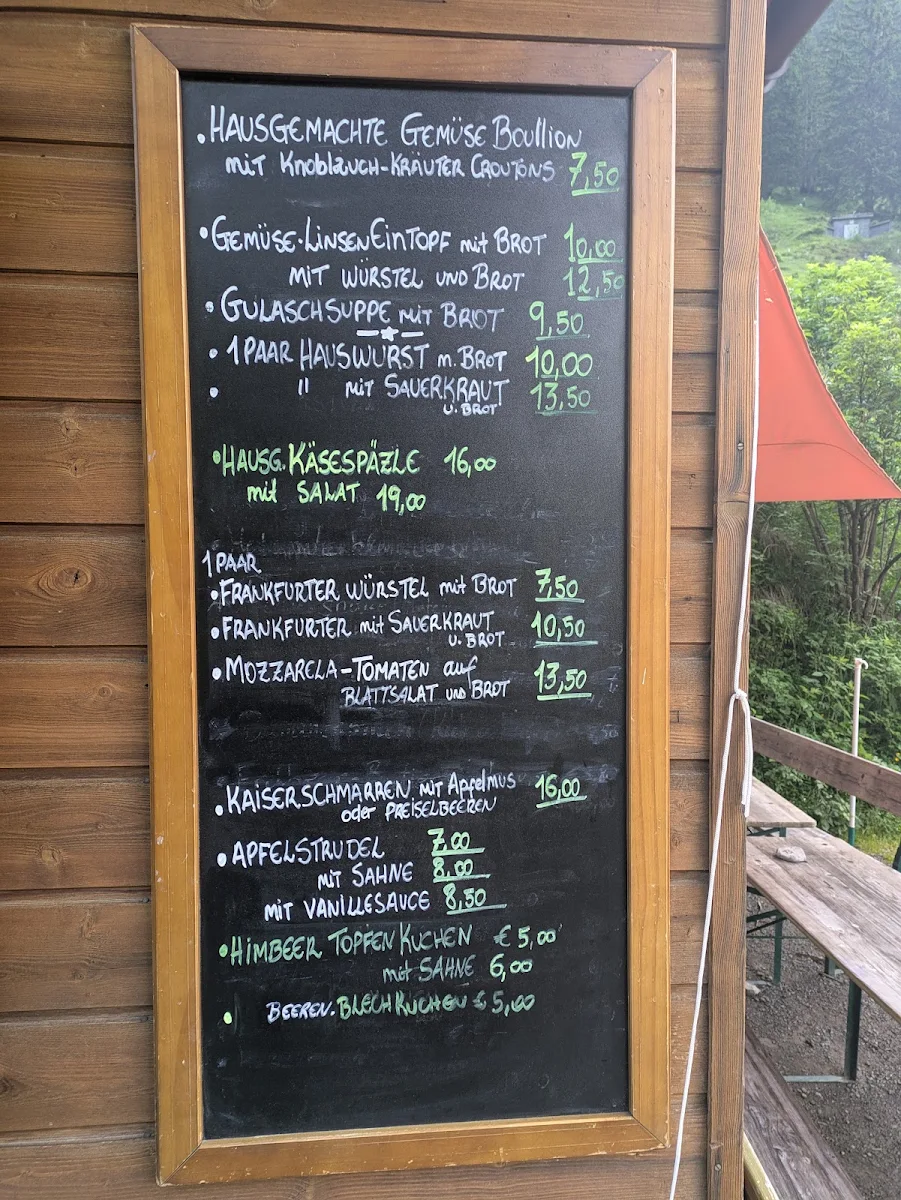 • HAUSGEMACHTE GEMÜSE BOULLION
mit KNOBLAUCH-KRÄUTER CROUTONS 7,50
• GEMÜSE-LINSENEINTOPF mit BROT 10,00
MIT WÜRSTEL UND BROT 12,50
• GULASCHSUPPE mit BROT 9,50
• 1 PAAR HAUSWURST m. BROT 10,00
• " mit SAUERKRAUT 13,50
u. BROT
• HAUSG. KÄSESPÄZLE 16,00
mit SALAT 19,00
1 PAAR
• FRANKFURTER WÜRSTEL mit BROT 7,50
• FRANKFURTER mit SAUERKRAUT 10,50
u. BROT
• MOZZARELA-TOMATEN auf 13,50
BLATTSALAT und BROT
• KAISERSCHMARREN mit Apfelmus 16,00
oder PREISELBEEREN
• APFELSTRUDEL 7,00
mit SAHNE 8,00
mit VANILLESAUCE 8,50
• HIMBEER TOPFEN KUCHEN € 5,00
mit SAHNE 6,00
• BEEREN. BLECHKUCHEN € 5,00